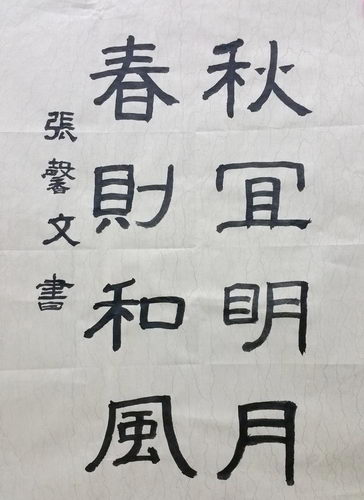 秋宜明月
春則和風
張馨文書